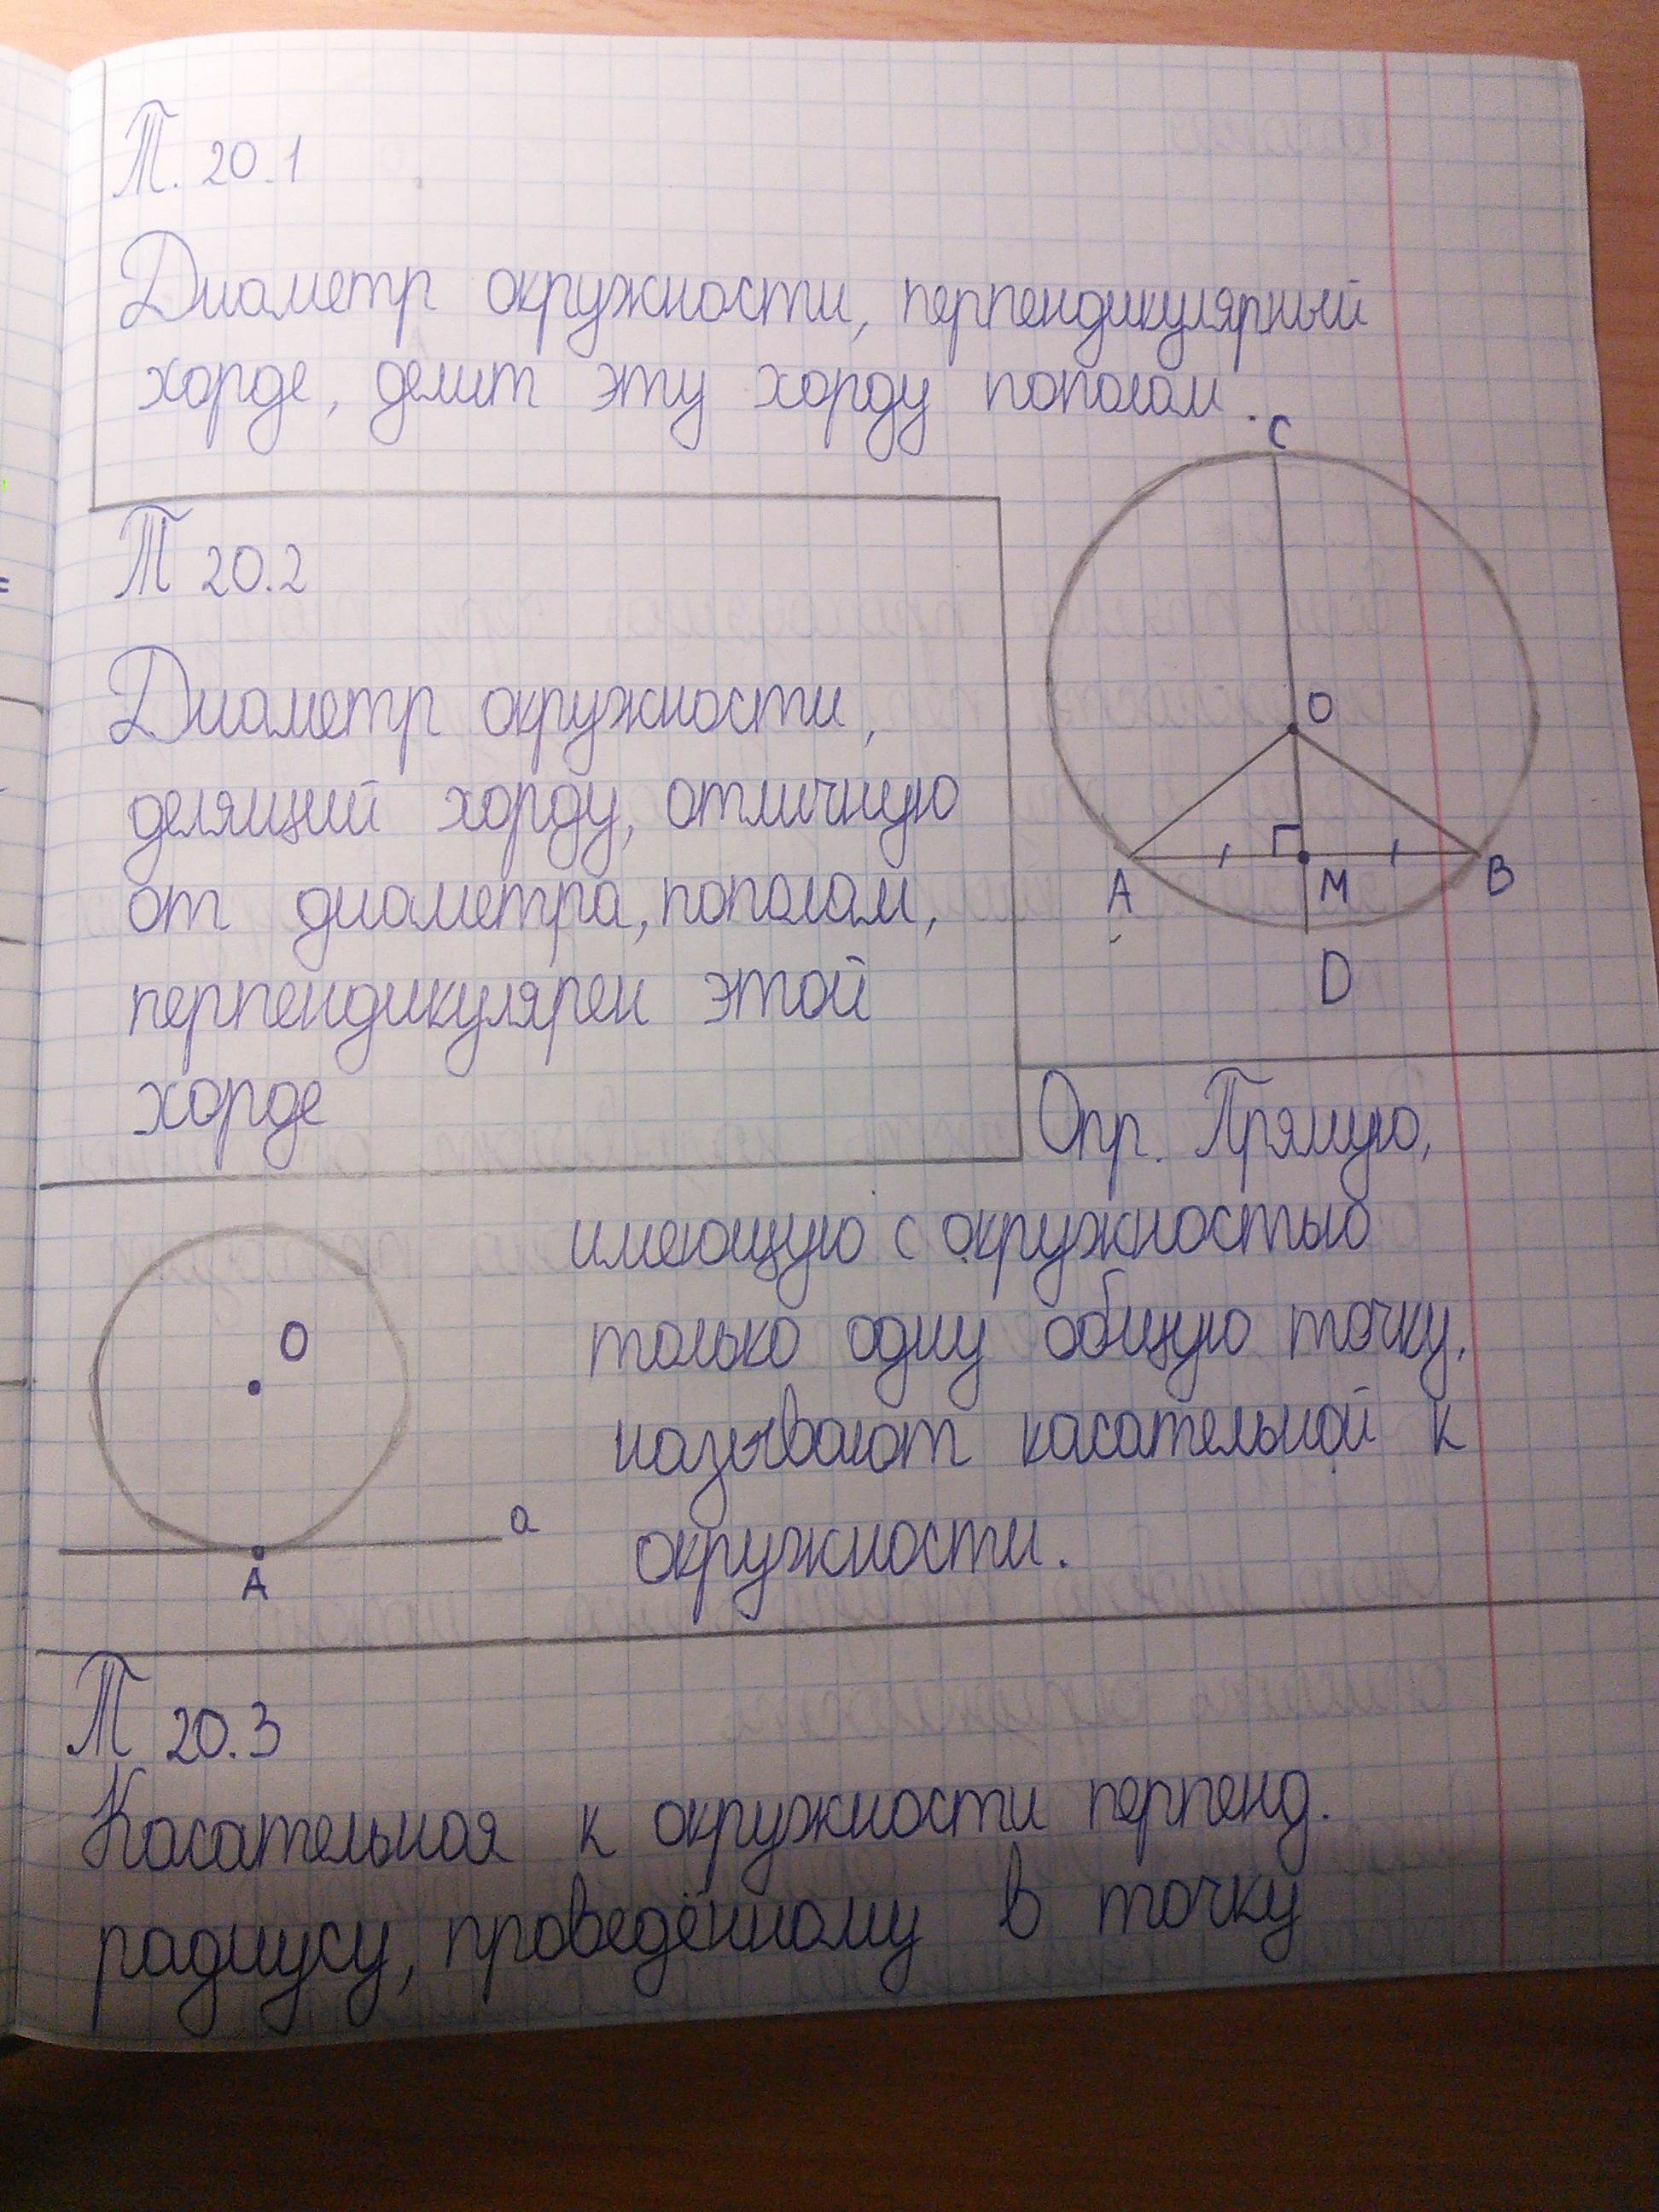 Т. 20.1
Диаметр окружности, перпендикулярный
хорде, делит эту хорду пополам.
C
O
A
M
B
D
Т 20.2
Диаметр окружности,
делящий хорду, отличную
от диаметра, пополам,
перпендикулярен этой
хорде
Опр. Прямую,
имеющую с окружностью
только одну общую точку,
называют касательной к
окружности.
O
a
A
Т 20.3
Касательная к окружности перпенд.
радиусу, проведённому в точку